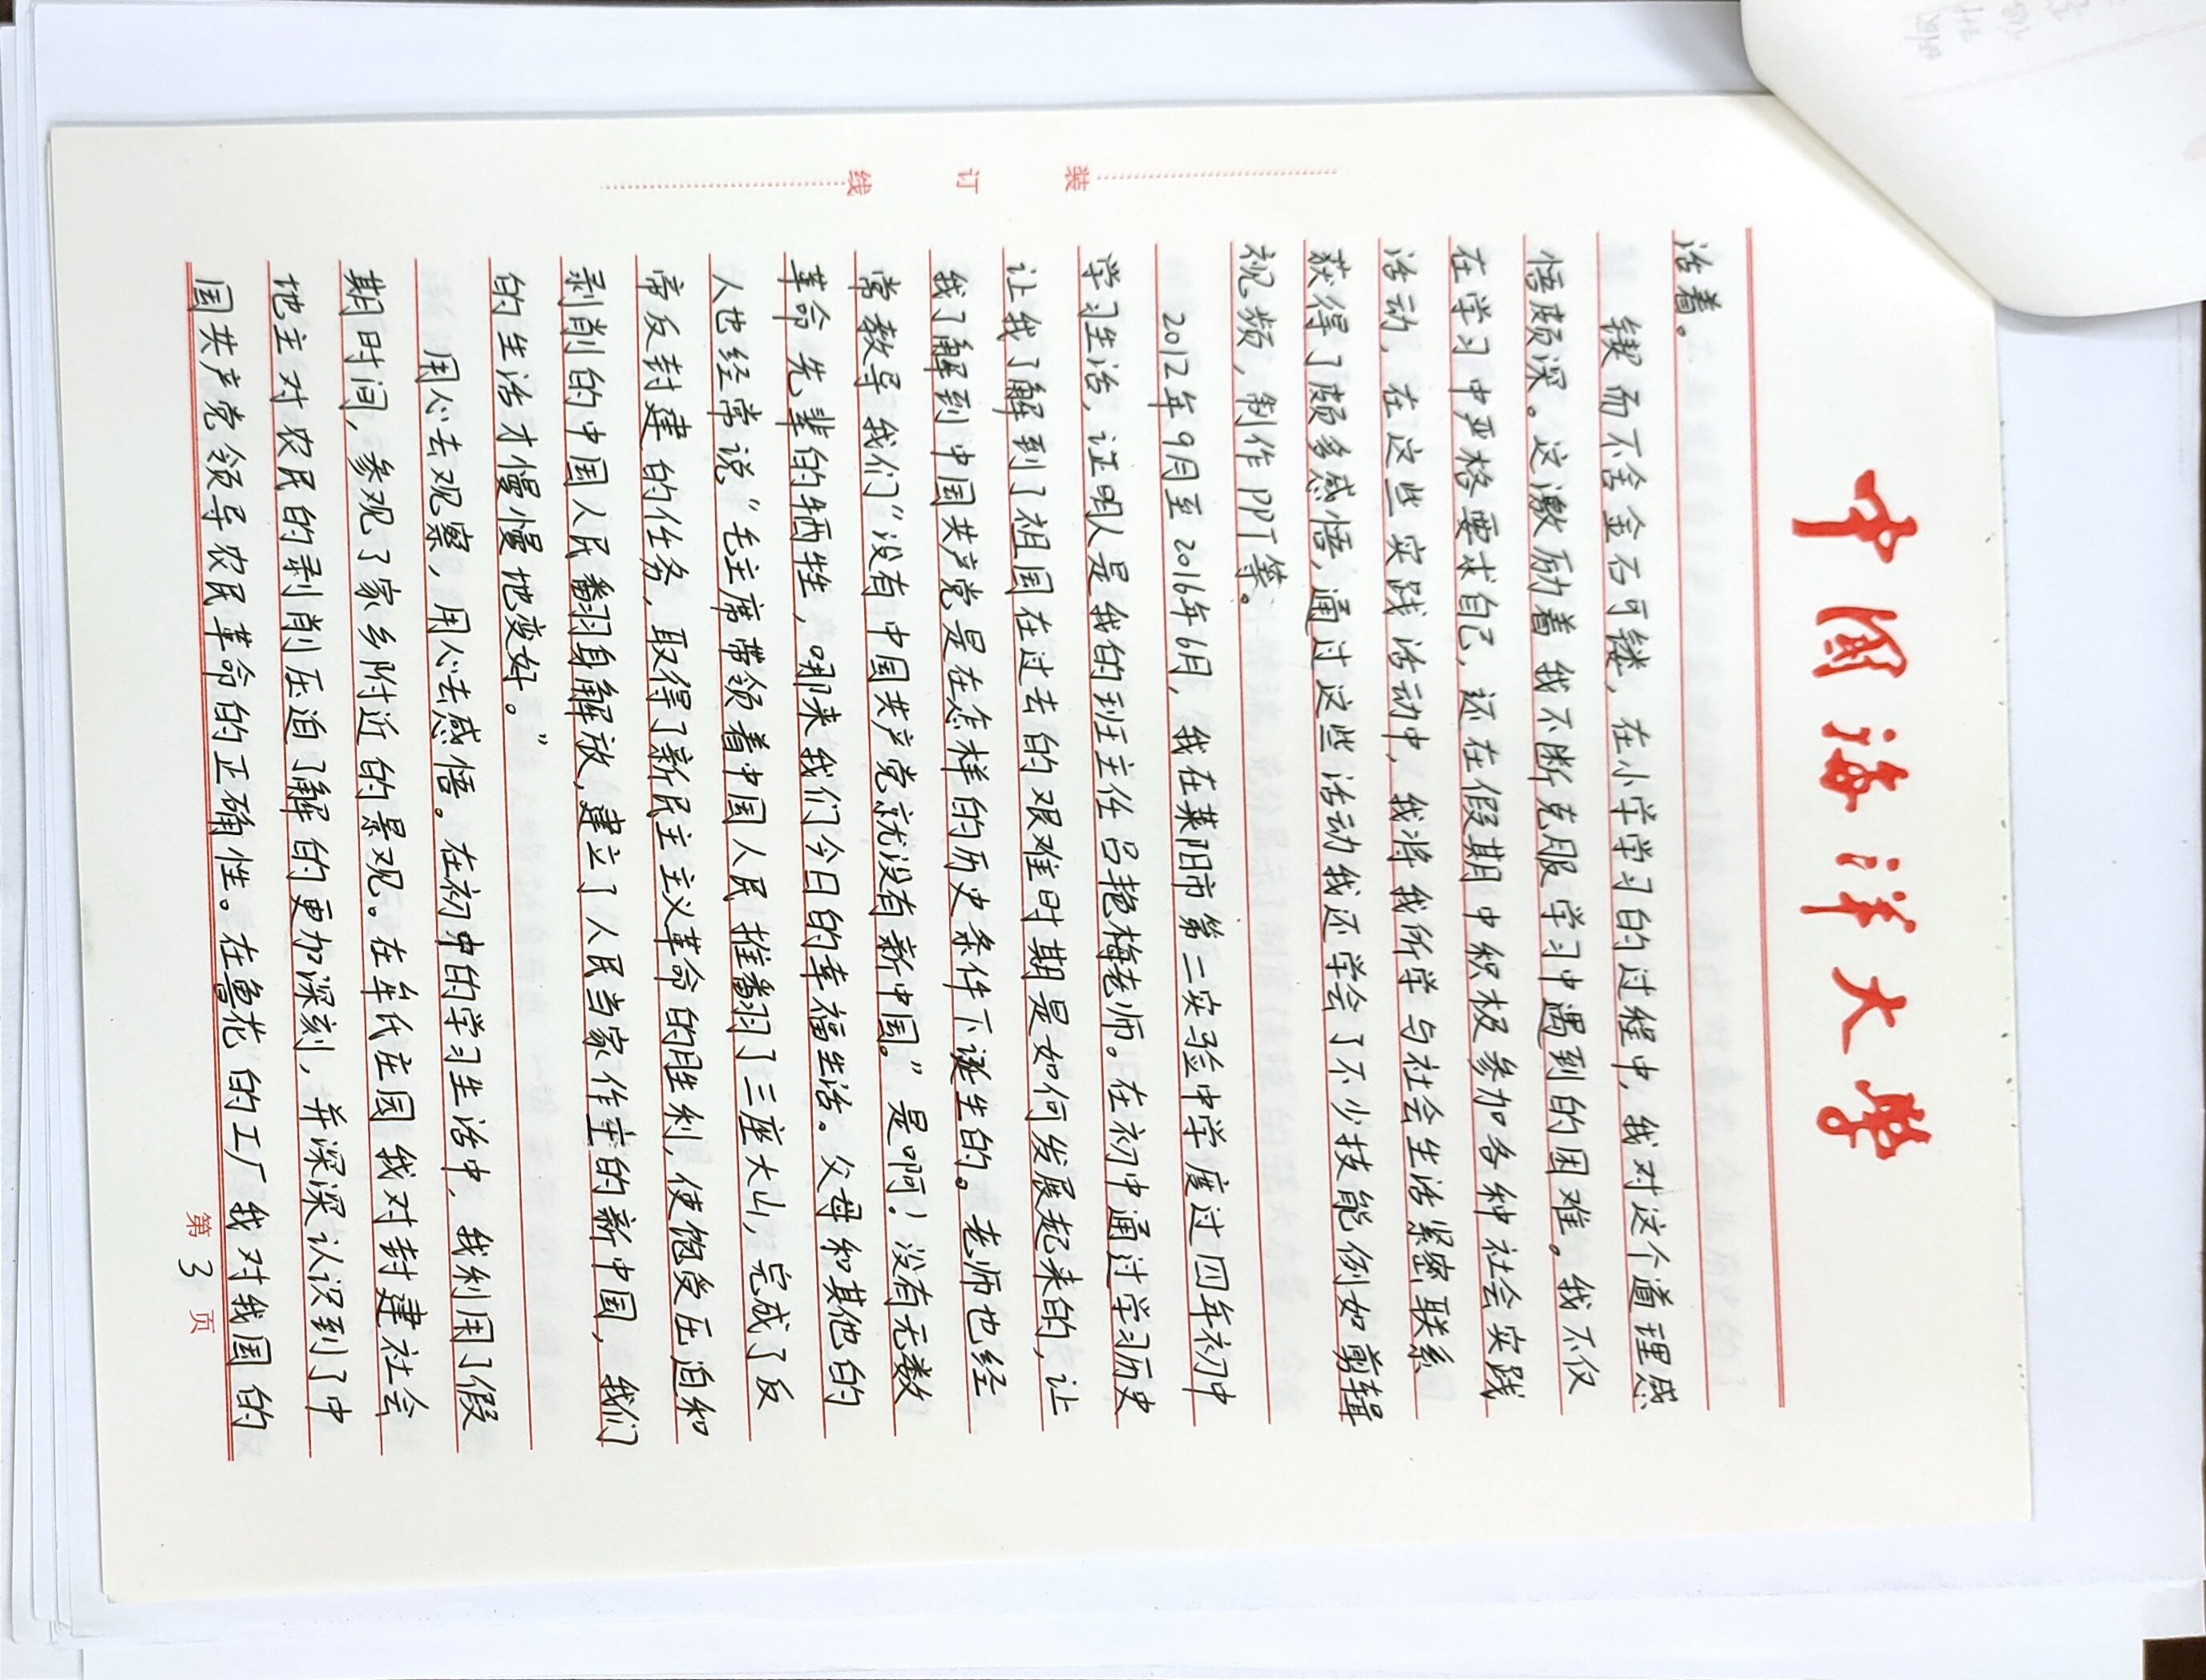 中国海洋大学
活着。
锲而不舍金石可镂，在小学学习的过程中，我对这个道理感
悟颇深。这激励着我不断克服学习中遇到的困难。我不仅
在学习中严格要求自己，还在假期中积极参加各种社会实践
活动，在这些实践活动中，我将我所学与社会生活紧密联系
获得了颇多感悟，通过这些活动我还学会了不少技能例如剪辑
视频，制作PPT等。
2012年9月至2016年6月，我在莱阳市第二实验中学度过四年初中
学习生活，证明人是我的班主任吕艳梅老师。在初中通过学习历史
让我了解到了祖国在过去的艰难时期是如何发展起来的，让
我了解到中国共产党是在怎样的历史条件下诞生的。老师也经
常教导我们“没有中国共产党就没有新中国。”是啊！没有无数
革命先辈的牺牲，哪来我们今日的幸福生活。父母和其他的
人也经常说“毛主席带领着中国人民推翻了三座大山，完成了反
帝反封建的任务，取得了新民主主义革命的胜利，使饱受压迫和
剥削的中国人民翻身解放，建立了人民当家作主的新中国，我们
的生活才慢慢地变好。”
用心去观察，用心去感悟。在初中的学习生活中，我利用了假
期时间，参观了家乡附近的景观。在牟氏庄园我对封建社会
地主对农民的剥削压迫了解的更加深刻，并深深认识到了中
国共产党领导农民革命的正确性。在鲁花的工厂我对我国的
第3页
装
订
线